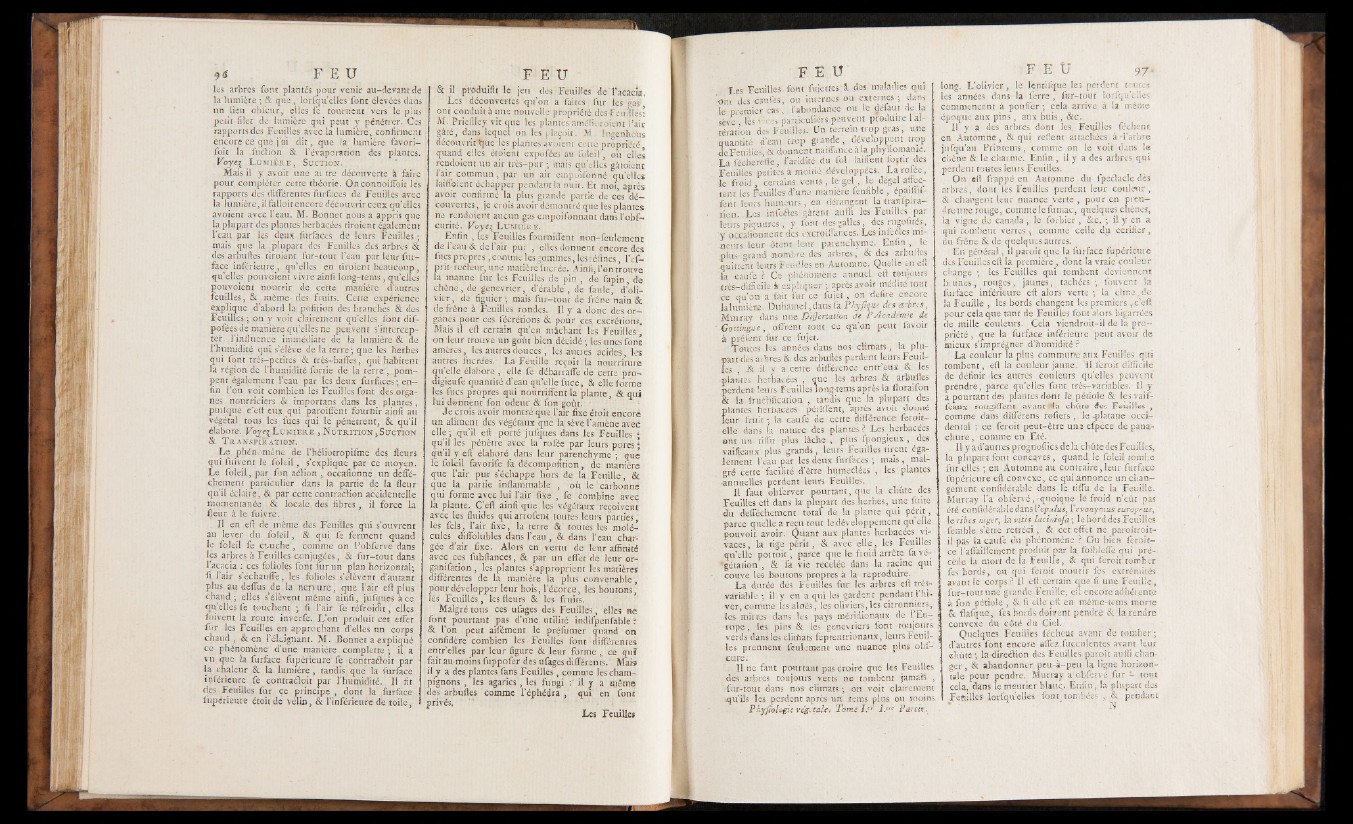 96 F E U
les arbres font plantés pour venir au-devant de
la lumière ; & que, lorfqu'elles font élevées dans
un lieu obfcur, elles fe tournent vers le plus
petit filet de lumière qui peut y pénétrer. Ces
rapports des Feuilles avec la lumière, confirment
encore ce que j'ai dit, que la lumiere favori-
foit la fuction & l'évaporation des plantes.
Voyez LUMIÈRE, SUCTION.
Mais il y avoit une autre découverte à faire
pour compléter cette théorie. On connoiffoit les
rapports des différentes furfaces de Feuilles avec
la lumière, il falloit encore découvrir ceux qu'elles
avoient avec l'eau. M. Bonnet nous a appris que
la plupart des plantes herbacées tiroient également
l'eau par les deux furfaces de leurs Feuilles ;
mais que la plupart des Feuilles des arbres &
des arbuftes tiroient fur-tout l'eau par leur fur-
face inférieure, qu'elles en tiroient beaucoup,
qu'elles pouvoient vivre ainfi long-tems, qu'elles
pouvoient nourrir de cette manière d'autres
feuilles, & même des fruits. Cette expérience
explique d'abord la pofition des branches & des
Feuilles ; on y voit clairement qu'elles font dif-
pofées de manière qu'elles ne peuvent s'intercep-
ter l'influence immédiate de la lumière & de
l'humidité qui s'élève de la terre ; que les herbes
qui font très-petites & très-baffes, qui habitent
la région de l'humidité fortie de la terre, pom-
pent également l'eau par les deux furfaces ; en-
fin l'on voit combien les Feuilles font des orga-
nes nourriciers & importans dans les plantes,
puifque c'eft eux qui paroiffent fournir ainfi au
végétal tous les fucs qui le pénètrent, & qu'il
élabore. Voyez LUMIERE, NUTRITION, SUCTION
& TRANSPIRATION.
Le phénomène de l'héliotropifme des fleurs
qui fuivent le foleil, s'explique par ce moyen.
Le foleil, par fon action, occafionne un deffé-
chement particulier dans la partie de la fleur
qu'il éclaire, & par cette contraction accidentelle
momentanée & locale des fibres, il force la
fleur à le fuivre.
Il en eft de même des Feuilles qui s'ouvrent
au lever du foleil, & qui fe ferment quand
le foleil fe couche, comme on l'obferve dans
les arbres à Feuilles conjuguées, & fur-tout dans
l'acacia : ces folioles font fur un plan horizontal;
fi l'air s'échauffe, les folioles s'élèvent d'autant
plus au deffus de la nervure, que l'air eft plus
chaud ; elles s'élèvent même ainfi, jufques à ce
qu'elles fe touchent ; fi l'air fe réfroidit, elles
fuivent la route inverfe. L'on produit cet effet
fur les Feuilles en approchant d'elles un corps
chaud, & en l'éloignant. M. Bonnet a expliqué
ce phénomène d'une manière complette ; il a
vu que la furface fupérieure fe contractoit par
la chaleur & la lumière, tandis que la furface
inférieure fe contractoit par l'humidité. Il fit
des Feuilles fur ce principe, dont la furface
fupérieure étoit de vélin, & l'inférieure de toile,
F E U
& il produifit le jeu des Feuilles de l'acacia.
Les découvertes qu'on a faites fur les gas,
ont conduit à une nouvelle propriété des Feuilles:
M. Prieftley vit que les plantes amélioroient l'air
gâté, dans lequel on les plaçoit. M. Ingenhouz
découvrit que les plantes avoient cette propriété,
quand elles étoient expofées au foleil, où elles
rendoient un air très-pur ; mais qu'elles gâtoient
l'air commun, par un air empoifonné qu'elles
laiffoient échapper pendant la nuit. Et moi, après
avoir confirmé la plus grande partie de ces dé-
couvertes, je crois avoir démontré que les plantes
ne rendoient aucun gas empoifonnant dans l'obf-
curité. Voyez LUMIÈRE.
Enfin, les Feuilles fourniffent non-feulement
de l'eau & de l'air pur, elles donnent encore des
fucs propres, comme les gommes, les réfines, l'ef-
prit-recteur, une matière fucrée. Ainfi, l'on trouve
la manne fur les Feuilles de pin, de fapin, de
chêne, de genevrier, d'érable, de faule, d'oli-
vier, de figuier ; mais fur-tout de frêne nain &
de frêne à Feuilles rondes. Il y a donc des or-
ganes pour ces fécrétions & pour ces excrétions.
Mais il eft certain qu'en mâchant les Feuilles,
on leur trouve un goût bien décidé ; les unes font
amères, les autres douces, les autres acides, les
autres fucrées. La Feuille reçoit la nourriture
qu'elle élabore, elle fe débarraffe de cette pro-
digieufe quantité d'eau qu'elle fuce, & elle forme
les fucs propres qui nourriffent la plante, & qui
lui donnent fon odeur & fon goût.
Je crois avoir montré que l'air fixe étoit encore
un aliment des végétaux que la sève l'amène avec
elle ; qu'il eft porté jufques dans les Feuilles ;
qu'il les pénètre avec la rofée par leurs pores ;
qu'il y eft élaboré dans leur parenchyme ; que
le foleil favorife fa décompofition, de manière
que l'air pur s'échappe hors de la Feuille, &
que la partie inflammable, où le carbonne
qui forme avec lui l'air fixe, fe combine avec
la plante. C'eft ainfi que les végétaux reçoivent
avec les fluides qui arrofent toutes leurs parties,
les fels, l'air fixe, la terre & toutes les molé-
cules diffolubles dans l'eau, & dans l'eau char-
gée d'air fixe. Alors en vertu de leur affinité
avec ces fubftances, & par un effet de leur or-
ganifation, les plantes s'approprient les matières
différentes de la manière la plus convenable,
pour développer leur bois, l'écorce, les boutons,
les Feuilles, les fleurs & les fruits.
Malgré tous ces ufages des Feuilles, elles ne
font pourtant pas d'une utilité indifpenfable :
& l'on peut aifément le préfumer quand on
confidère combien les Feuilles font différentes
entr'elles par leur figure & leur forme, ce qui
fait au-moins fuppofer des ufages différents. Mais
il y a des plantes fans Feuilles, comme les cham-
pignons, les agarics, les fungi ; il y a même
des arbuftes comme l'éphédra, qui en font
privés,
Les Feuilles
F E U
Les Feuilles font fujettes à des maladies qui
ont des caufes, ou internes ou externes ; dans
le premier cas, l'abondance ou le défaut de la
sève, les vices particuliers peuvent produire l'al-
tération des Feuilles. Un terrein trop gras, une
quantité d'eau trop grande, développent trop
de Feuilles, & donnent naiffance à la phyllomanie.
La féchereffe, l'aridité du fol laiffent fortir des
Feuilles petites à moitié développées. La rofée,
le froid, certains vents, le gel, le dégel affec-
tent les Feuilles d'une manière fenfible, épaiffif-
fent leurs humeurs, en dérangent la tranfpira-
tion. Les infectes gâtent auffi les Feuilles par
leurs piquures, y font des galles, des rugofités,
y occafionnent des excroiffances. Les infectes mi-
neurs leur ôtent leur parenchyme. Enfin, le
plus grand nombre des arbres, & des arbuftes
quittent leurs Feuilles en Automne. Quelle en eft
la caufe ? Ce phénomène annuel eft toujours
très-difficile à expliquer ; après avoir médité tout
ce qu'on a fait fur ce fujet, on defire encore
la lumière. Duhamel, dans fa Phyfique des arbres,
Murray dans une Differtation de l'Académie de
Gottingue, offrent tout ce qu'on peut favoir
à préfent fur ce fujet.
Toutes les années dans nos climats, la plu-
part des arbres & des arbuftes perdent leurs Feuil-
les, & il y a cette différence entr'eux & les
plantes herbacées, que les arbres & arbuftes
perdent leurs Feuilles long-tems après la floraifon
& la fructification, tandis que la plupart des
plantes herbacées périffent, après avoir donné
leur fruit ; la caufe de cette différence feroit-
elle dans la nature des plantes ? Les herbacées
ont un tiffu plus lâche, plus fpongieux, des
vaiffeaux plus grands, leurs Feuilles tirent éga-
lement l'eau par les deux furfaces ; mais, mal-
gré cette facilité d'être humectées, les plantes
annuelles perdent leurs Feuilles.
Il faut obferver pourtant, que la chûte des
Feuilles eft dans la plupart des herbes, une fuite
du defféchement total de la plante qui périt,
parce qu'elle a reçu tout le développement qu'elle
pouvoit avoir. Quant aux plantes herbacées vi-
vaces, la tige périt, & avec elle, les Feuilles
qu'elle portoit, parce que le froid arrête fa vé-
gétation, & fa vie recelée dans la racine qui
couve les boutons propres à la reproduire.
La durée des Feuilles fur les arbres eft très-
variable ; il y en a qui les gardent pendant l'hi-
ver, comme les aloës, les oliviers, les citronniers,
les mirtes dans les pays méridionaux de l'Eu-
rope, les pins & les genevriers font toujours
verds dans les climats feptentrionaux, leurs Feuil-
les prennent feulement une nuance plus obf-
cure.
Il ne faut pourtant pas croire que les Feuilles
des arbres toujours verts ne tombent jamais,
fur-tout dans nos climats ; on voit clairement
qu'ils les perdent après un tems plus ou moins
Phyfiologie végétale. Tome I.er I.ere Partie.
F E U 97
long. L'olivier, le lentifque les perdent toutes
les années dans la ferre, fur-tout lorfqu'elles
commencent à pouffer ; cela arrive à la même
époque aux pins, aux buis, &c.
Il y a des arbres dont les Feuilles féchent
en Automne, & qui reftent attachées à l'arbre
jufqu'au Printems, comme on le voit dans le
chêne & le charme. Enfin, il y a des arbres qui
perdent toutes leurs Feuilles.
On eft frappé en Automne du fpectacle des
arbres, dont les Feuilles perdent leur couleur,
& changent leur nuance verte, pour en pren-
dre une rouge, comme le fumac, quelques chênes,
la vigne de canada, le forbier, &c. ; il y en a
qui tombent vertes, comme celle du cerifier,
du frêne & de quelques autres.
En général, il paroît que la furface fupérieure
des Feuilles eft la première, dont la vraie couleur
change ; les Feuilles qui tombent deviennent
brunes, rouges, jaunes, tachées ; fouvent la
furface inférieure eft alors verte ; la cîme de
la Feuille, les bords changent les premiers, c'eft
pour cela que tant de Feuilles font alors bigarrées
de mille couleurs. Cela viendroit-il de la pro-
priété, que la furface inférieure peut avoir de
mieux s'imprégner d'humidité ?
La couleur la plus commune aux Feuilles qui
tombent, eft la couleur jaune. Il feroit difficile
de définir les autres couleurs qu'elles peuvent
prendre, parce qu'elles font très-variables. Il y
a pourtant des plantes dont le pétiole & les vaif-
feaux rougiffent avant la chûte des Feuilles,
comme dans différens rofiers, le platane occi-
dental : ce feroit peut-être une efpèce de pana-
chure, comme en Eté.
Il y a d'autres prognoftics de la chûte des Feuilles,
la plupart font concaves, quand le foleil tombe
fur elles ; en Automne au contraire, leur furface
fupérieure eft convexe, ce qui annonce un chan-
gement confidérable dans le tiffu de la Feuille.
Murray l'a obfervé, quoique le froid n'eût pas
été confidérable dans l'opulus, l'evonymus europæus,
le ribes niger, la vitis laciniofa ; le bord des Feuilles
femble s'être retréci, & cet effet ne paroîtroit-
il pas la caufe du phénomène ? Ou bien feroit-
ce l'affaiffement produit par la foibleffe qui pré-
cède la mort de la Feuille, & qui feroit tomber
fes bords, ou qui feroit mourir fes extrémités
avant le corps ? Il eft certain que fi une Feuille,
fur-tout une grande Feuille, eft encore adhérente
à fon pétiole, & fi elle eft en même-tems morte
& flafque, fes bords doivent pendre & la rendre
convexe du côté du Ciel.
Quelques Feuilles féchent avant de tomber ;
d'autres font encore affez fucculentes avant leur
chûte ; la direction des Feuilles paroît auffi chan-
ger, & abandonner peu-à-peu la ligne horizon-
tale pour pendre. Murray a obfervé fur-tout
cela, dans le meurier blanc. Enfin, la plupart des
Feuilles lorfqu'elles font tombées, & pendant
N